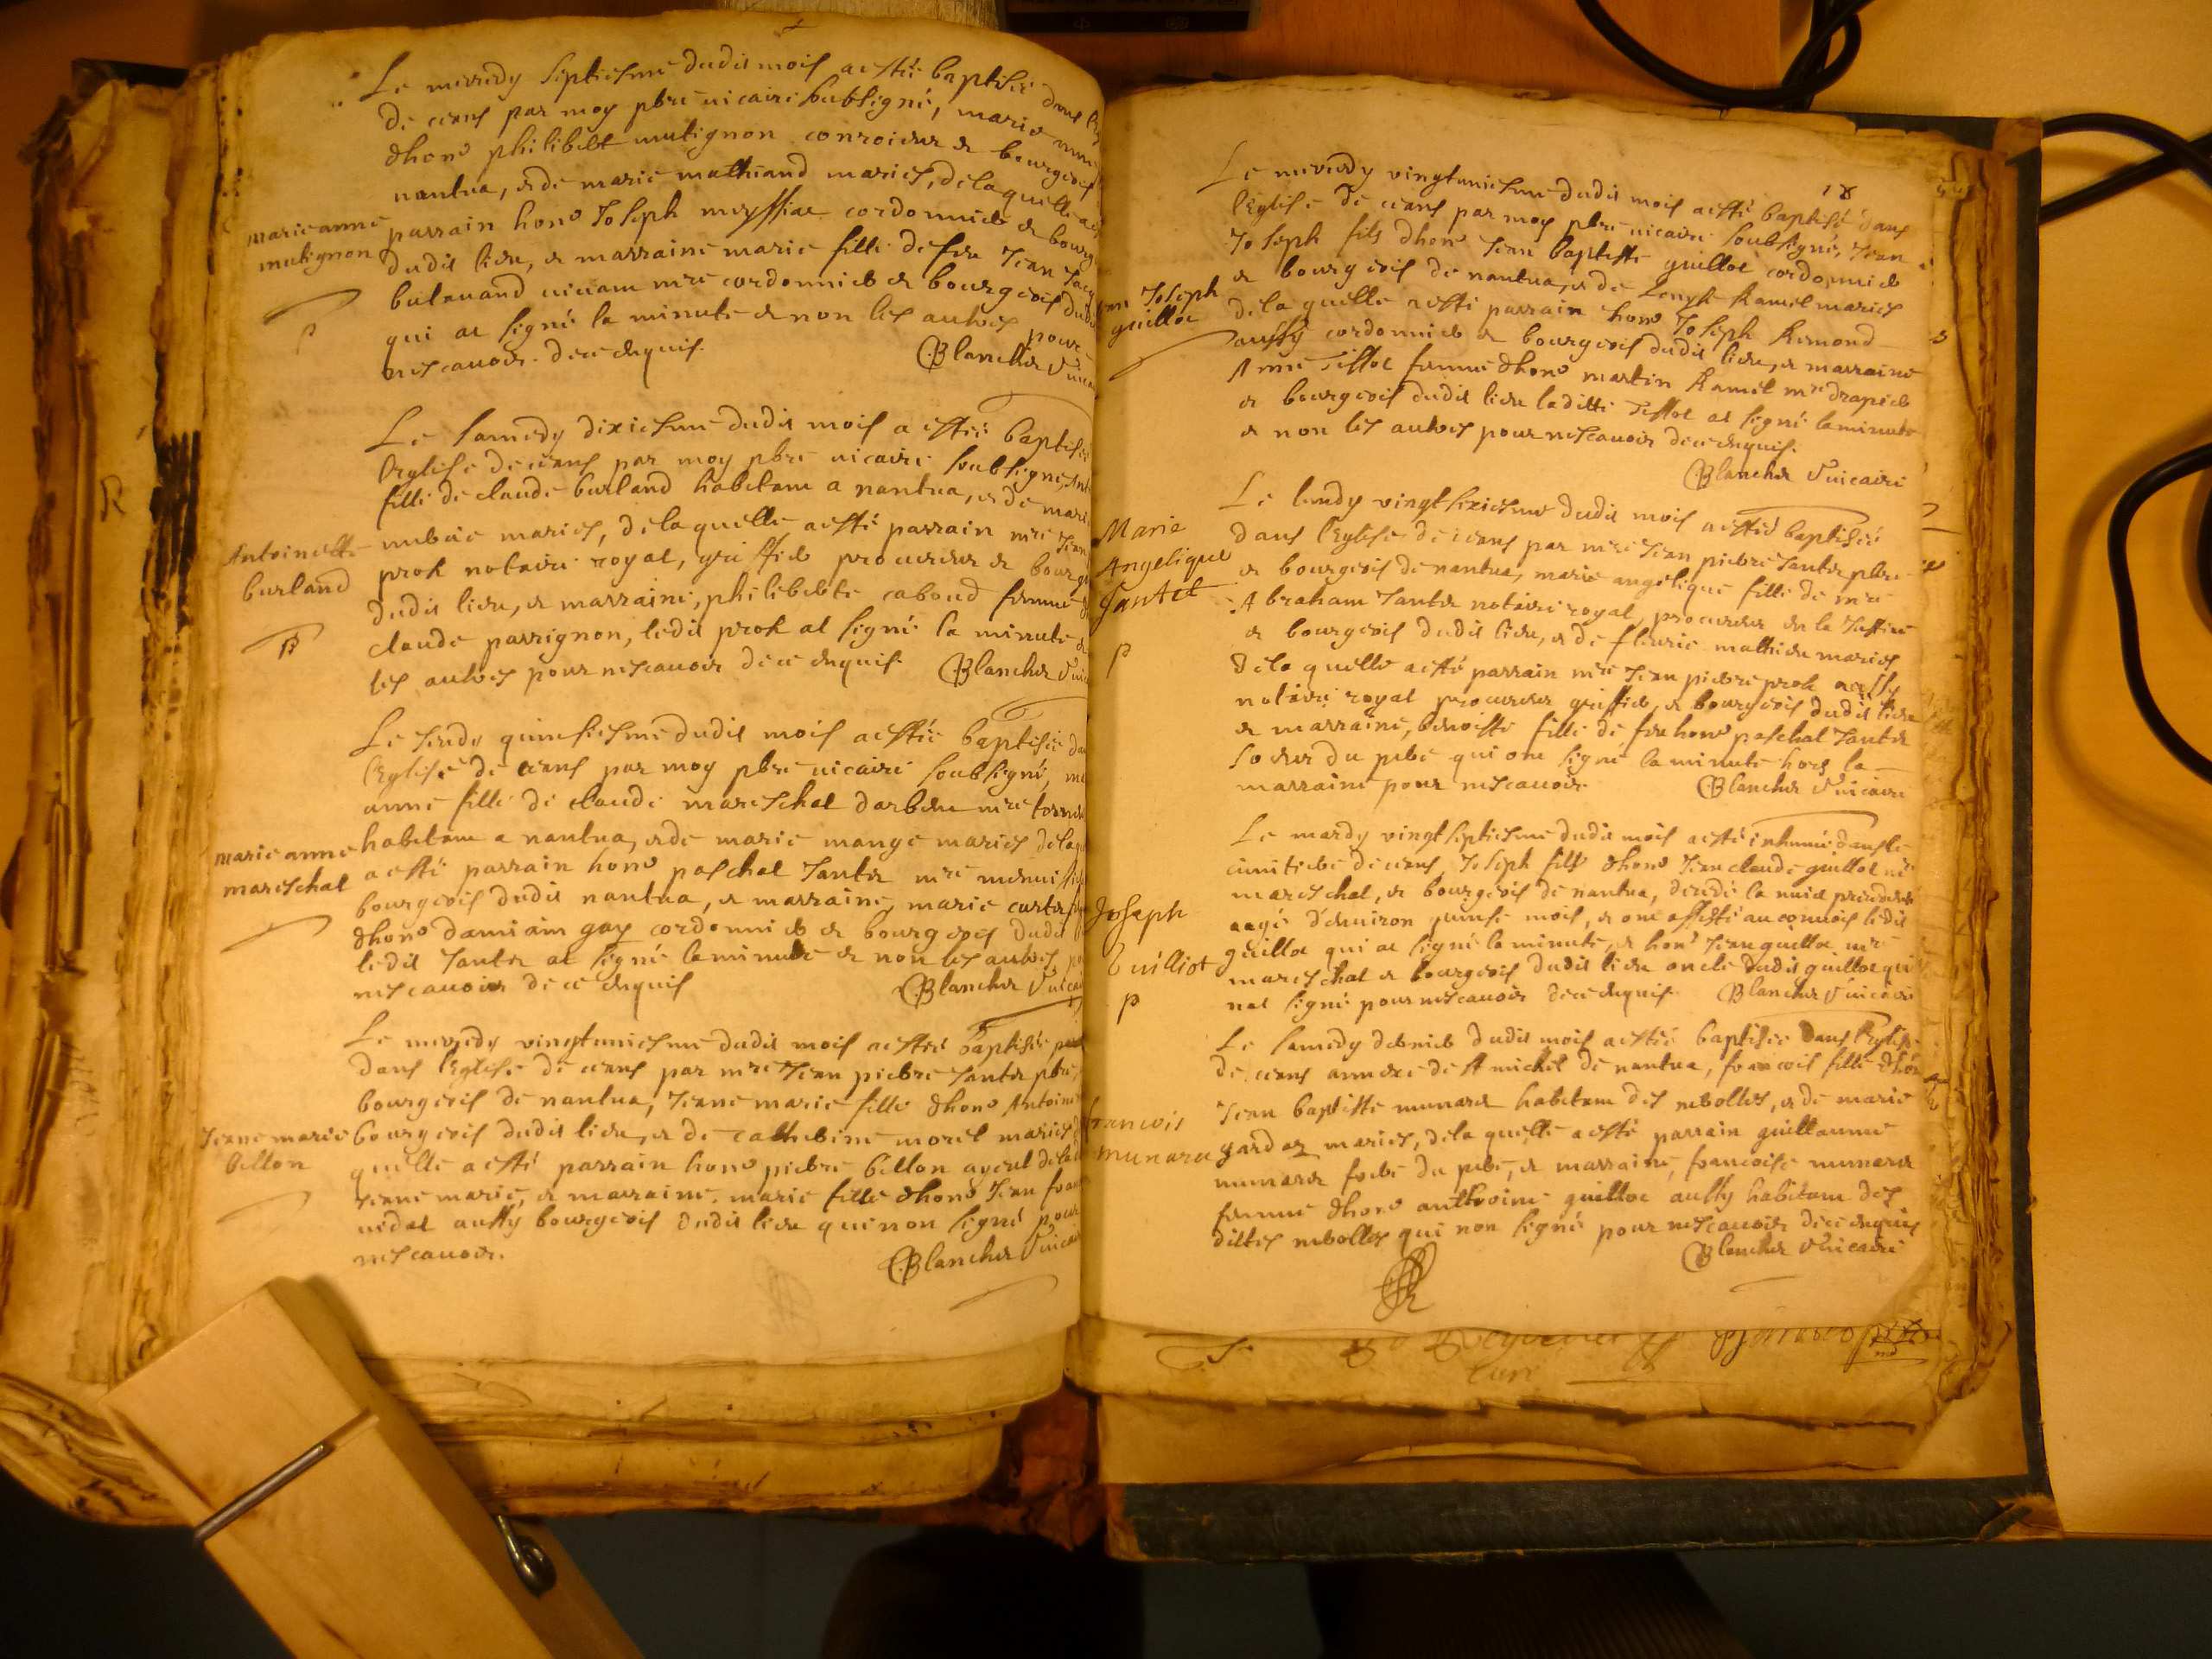 Le mecredy septiesme dudit mois a esté baptisée dans
de ceans par moy pbre vicaire soubsigné, marie anne
dhono philibert mutignon conroieur et bourgeois
nantua, et de marie mathiand mariés, de laquelle a
marie anne
mutignon
parrain hono Joseph meyssiat cordonnier et bourg
dudit lieu, et marraine marie fille de feu Jean Jacq
butavand vivant mre cordonnier et bourgeois dudit
qui at signé la minute et non les autres pour
nescavoir de ce enquis.
Blanchet vicaire
Le samedy dixiesme dudit mois a estée baptisée
leglise de ceans par moy pbre vicaire soubsigné, Ant
fille de claude burland habitant a nantua, et de marie
Antoinette
burland
mariés, de laquelle a esté parrain mre Jean
prok notaire royal, greffier procureur et bourg
dudit lieu, et marraine, philiberte caboud femme
claude parrignon, ledit prok at signé la minute et
les autres pour nescavoir de ce enquis. Blanchet vicaire
Le Jeudy quinsiesme dudit mois a estée baptisée da
leglise de ceans par moy pbre vicaire soubsigné, ma
anne fille de claude mareschal darbent mre
marie anne
mareschal
habitant a nantua, et de marie mange mariés de laq
a esté parrain hono paschal Jantet mre menuisier
bourgeois dudit nantua, et marraine, marie curtet
dhono damiain gay cordonnier et bourgeois dudit
ledit Jantet at signé la minute et non les autres po
nescavoir de ce enquis
Blanchet vicaire
Le mecredy vingtuniesme dudit mois a estée baptisée
dans leglise de ceans par mre Jean pierre Jantet pbre
bourgeois de nantua, Jeane marie fille dhono Antoine
Jeane marie
billon
bourgeois dudit lieu, et de catherine morel mariés
quelle a esté parrain hono pierre billon ayeul de la
Jeane marie, et marraine, marie fille dhono Jean fran
vidal aussy bourgeois dudit lieu qui non signé pour
nescavoir.
Blanchet vicaire
18
Le mecredy vingtuniesme dudit mois a esté baptisé dans
leglise de ceans par moy pbre vicaire soubsigné, Jean
Joseph fils dhono Jean baptiste guillot cordonnier
Joseph
guillot
et bourgeois de nantua, et de Ramel mariés
de la quelle a esté parrain hono Joseph Remond
aussy cordonnier et bourgeois dudit lieu, et marraine
Anne Tissot femme dhono martin Ramel mre drapier
et bourgeois dudit lieu laditte Tissot at signé la minute
et non les autres pour nescavoir de ce enquis.
Blanchet vicaire
Le lundy vingtsixiesme dudit mois a estée baptisée
Marie
Angelique
Jantet
p
dans leglise de ceans par mre Jean pierre Jantet pbre
et bourgeois de nantua, marie angelique fille de mre
Abraham Jantet notaire royal, procureur en la Justice
et bourgeois dudit lieu, et de fleurie mathieu mariés
de la quelle a esté parrain mre Jean pierre prok aussy
notaire royal procureur greffier et bourgeois dudit lieu
et marraine, benoiste fille de feu hono paschal Jantet
soeur du pere qui ont signé la minute hors la
marraine pour nescavoir.
Blanchet vicaire
Le mardy vingtseptiesme dudit mois a esté inhumé dans le
cimitiere de ceans, Joseph fils dhono Jean claude guillot mre
mareschal, et bourgeois de nantua, decedé la nuit precedente
Joseph
Guilliot
p
aagé d'environ quinse mois, et ont assisté au convois ledit
guillot qui at signé la minute, et hono Jean guillot mre
mareschal et bourgeois dudit lieu oncle dudit guillot qui
nat signé pour nescavoir de ce enquis. Blanchet vicaire
Le samedy dernier dudit mois a estée baptisée dans leglise
de ceans annexe de st michel de nantua, francois fille dhono
francois
munaret
Jean baptiste munaret habitant des nerbolles, et de marie
gardaz mariés, de la quelle a esté parrain guillaume
munaret frere du pere, et marraine, francoise munaret
femme dhono anthoine guillot aussy habitant des
dittes nerbolles qui non signé pour nescavoir de ce enquis
Blanchet vicaire